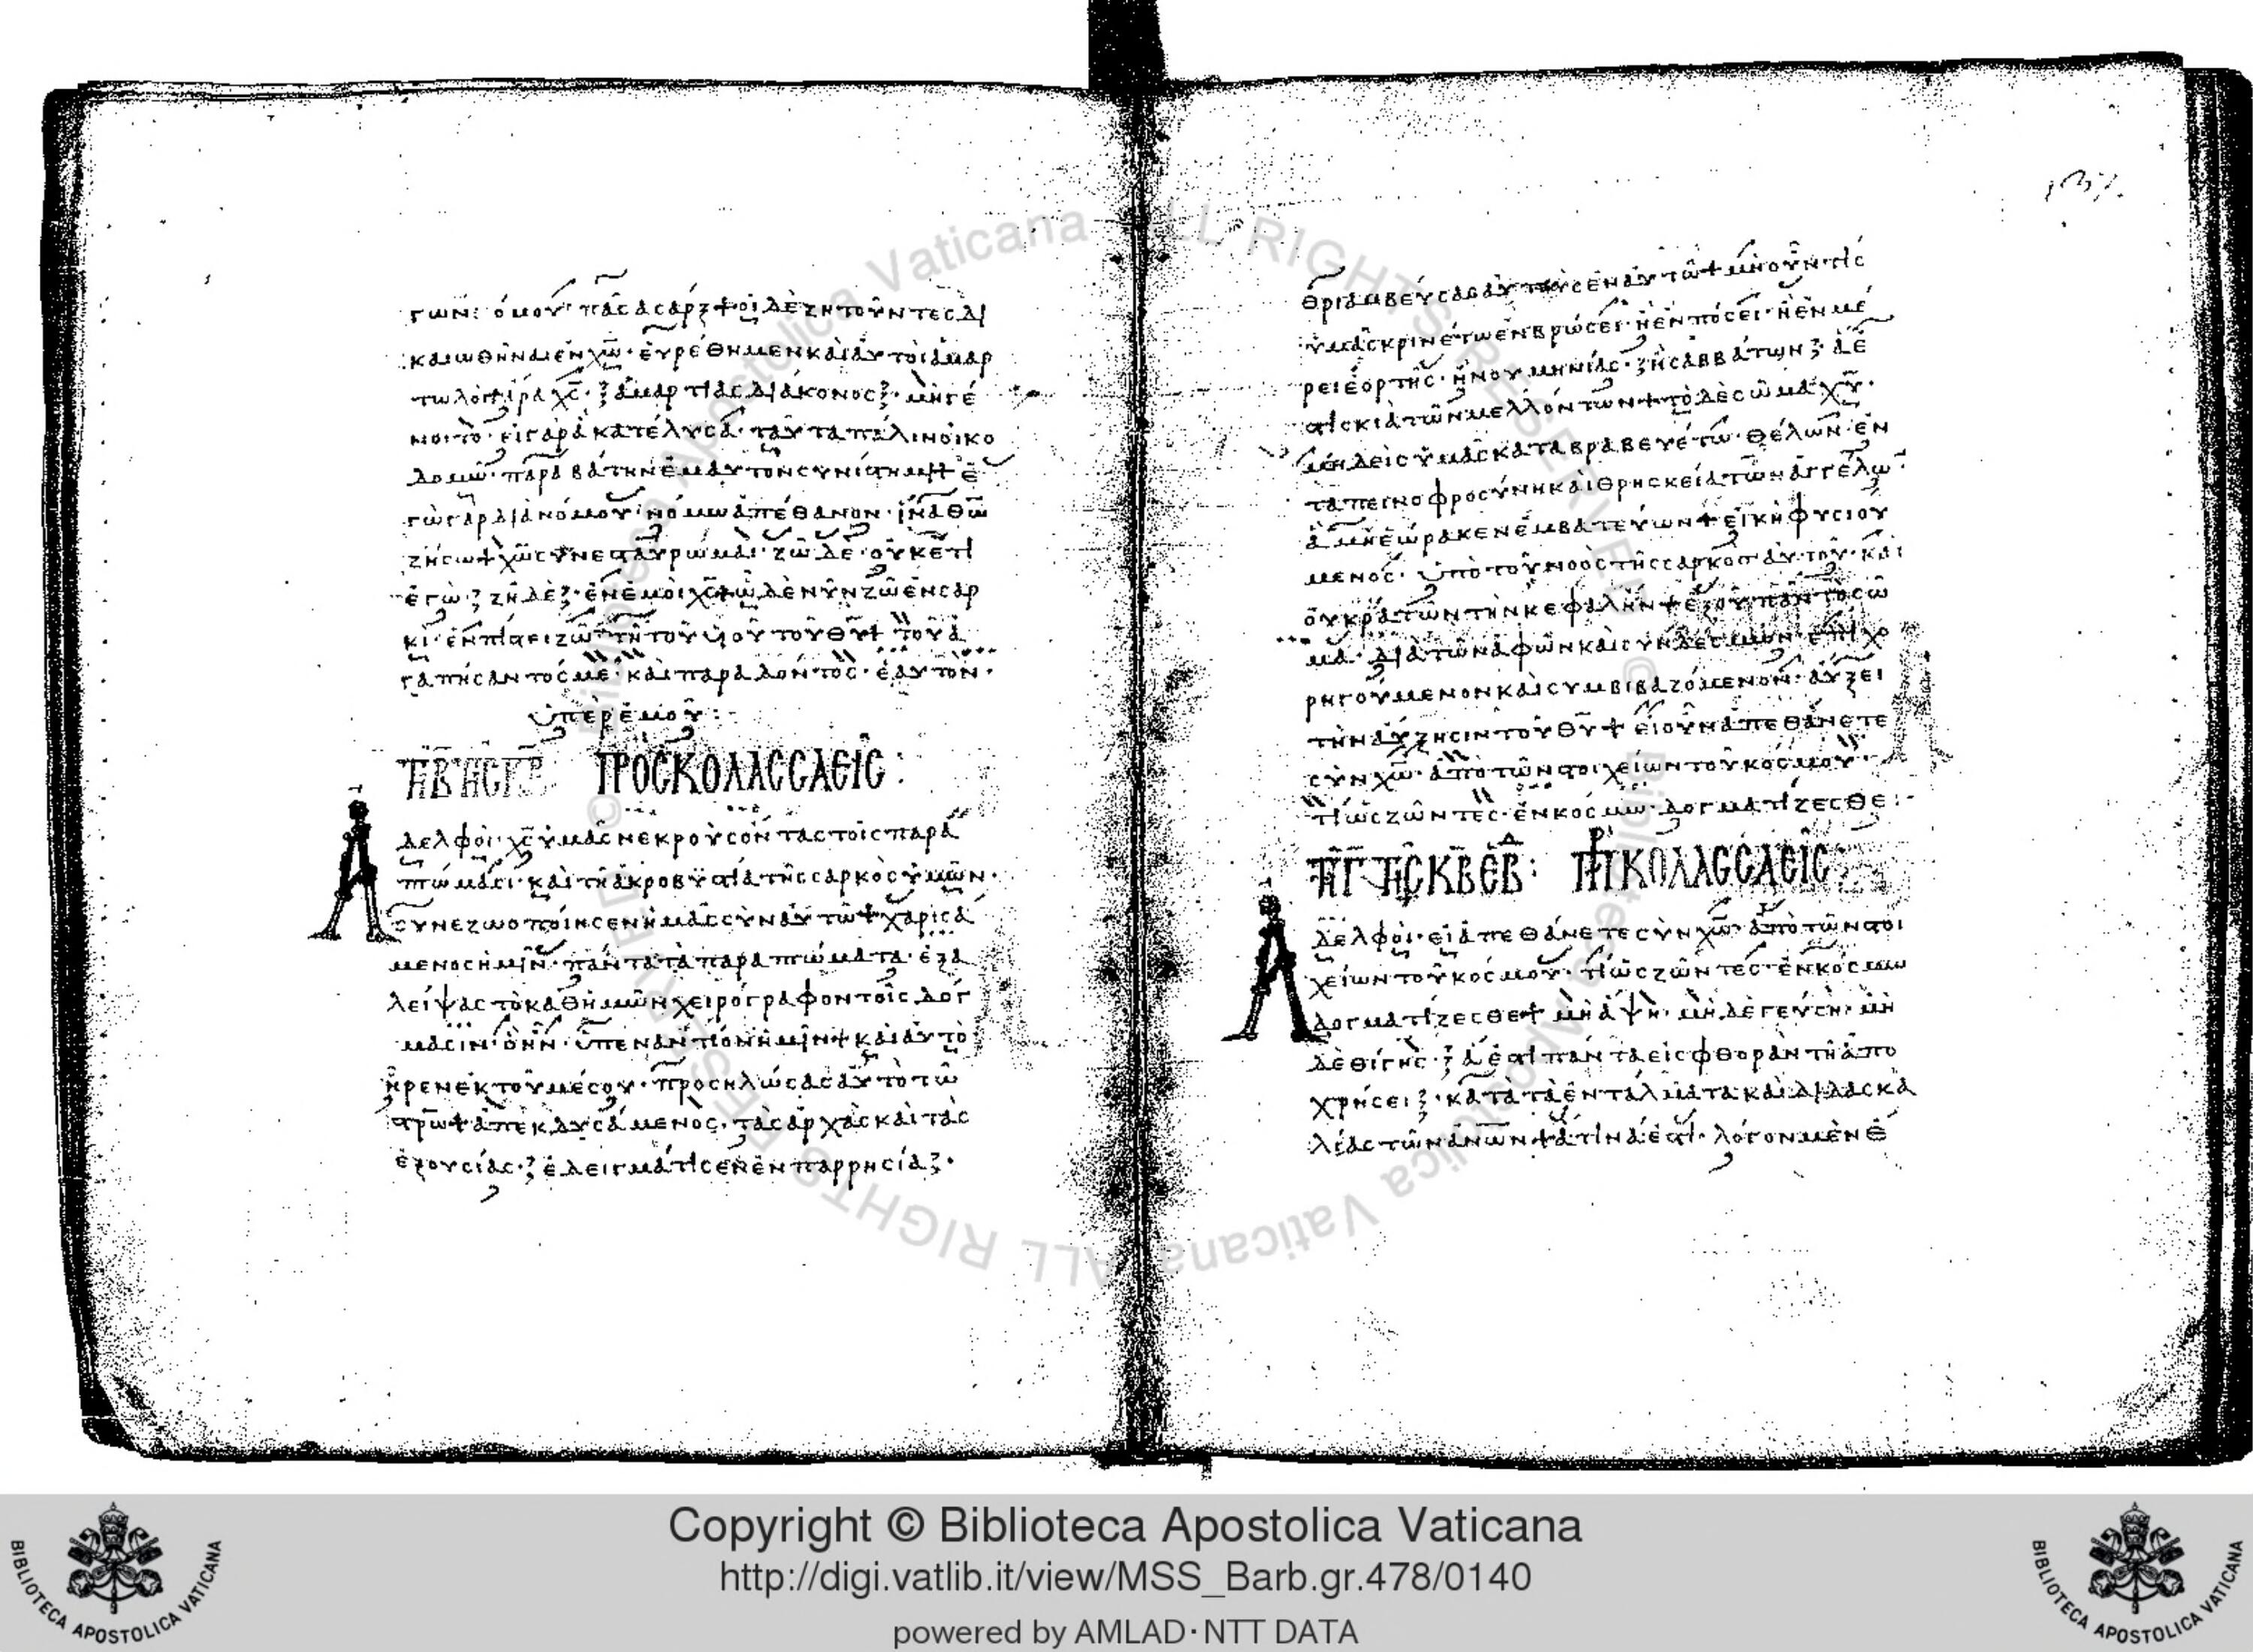 γων· ὁμοῦ πᾶσα σάρξ + οἱ δὲ ζητοῦντες δι
καιωθῆναι ἐν χω· εὑρέθημεν καὶ αὐτοὶ ἁμαρ
τωλοὶ ἆρα χς· ἁμαρτίας διάκονος· μὴ γέ
νοιτο· εἰ γὰρ ἃ κατέλυσα· ταῦτα πάλιν οἰκο
δομῶ· παραβάτην ἐμαυτὸν συνίστημι + ἐ
γὼ γὰρ διὰ νόμου νόμω ἀπέθανον· ἵνα θω
ζήσω + χω συνεσταύρωμαι· ζῶ δὲ οὐκέτι
ἐγώ· ζῆ δὲ· ἐν ἐμοὶ χς + ὃ δὲ νῦν ζῶ ἐν σαρ
κί· ἐν πίστει ζῶ τῆ τοῦ υἱοῦ τοῦ θυ + τοῦ ἀ
γαπήσαντός με· καὶ παραδόντος· ἑαυτὸν·
ὑπὲρ ἐμοῦ:
ΠΡΟΣ ΚΟΛΑΣΣΑΕΙΣ:
Ἀ
δελφοί· χς ὑμᾶς νεκροὺς ὄντας τοῖς παρα
πτώμασι· καὶ τῆ ἀκροβυστία τῆς σαρκὸς ὑμῶν·
συνεζωοποίησεν ἡμᾶς σὺν αὐτῶ + χαρισά
μενος ἡμῖν· πάντα τὰ παραπτώματα· ἐξα
λείψας τὸ καθ ἡμῶν χειρόγραφον τοῖς δόγ
μασιν· ὃ ἦν· ὑπεναντίον ἡμῖν + καὶ αὐτὸ
ἦρεν ἐκ τοῦ μέσου· προσηλώσας αὐτὸ τῶ
στρω + ἀπεκδυσάμενος· τὰς ἀρχὰς καὶ τὰς
ἐξουσίας· ἐδειγμάτισεν ἐν παρρησία·
θριαμβεύσας αὐτοὺς ἐν αὐτῶ + μὴ οὖν τις
ὑμᾶς κρινέτω ἐν βρώσει· ἢ ἐν πόσει· ἢ ἐν μέ
ρει ἑορτῆς· ἢ νουμηνίας· ἢ σαββάτων· ἅ ἐ
στι σκιὰ τῶν μελλόντων + τὸ δὲ σῶμα χυ·
μηδεὶς ὑμᾶς καταβραβευέτω· θέλων ἐν
ταπεινοφροσύνη καὶ θρησκεία τῶν ἀγγέλω
ἃ μὴ ἑώρακεν ἐμβατεύων + εἰκῆ φυσιού
μενος· ὑπὸ τοῦ νοὸς τῆς σαρκὸς αὐτοῦ· καὶ
οὐ κρατῶν τὴν κεφαλὴν + ἐξ οὗ πᾶν τὸ σῶ
μα· διὰ τῶν ἁφῶν καὶ συνδέσμων· ἐπιχο
ρηγούμενον καὶ συμβιβαζόμενον· αὔξει
τὴν αὔξησιν τοῦ θυ + εἰ οὖν ἀπεθάνετε
σὺν χω· ἀπὸ τῶν στοιχείων τοῦ κόσμου·
τί ὡς ζῶντες· ἐν κόσμω· δογματίζεσθε:
ΚΟΛΑΣΣΑΕΙΣ
Ἀ
δελφοί· εἰ ἀπεθάνετε σὺν χω· ἀπὸ τῶν στοι
χείων τοῦ κόσμου· τί ὡς ζῶντες· ἐν κόσμω
δογματίζεσθε + μὴ ἅψη· μηδὲ γεύση· μη
δὲ θίγης· ἅ ἐστι πάντα εἰς φθορὰν τῆ ἀπο
χρήσει· κατὰ τὰ ἐντάλματα καὶ διδασκα
λίας τῶν ανων + ἅτινά ἐστι· λόγον μὲν ἔ
Copyright © Biblioteca Apostolica Vaticana
http://digi.vatlib.it/view/MSS_Barb.gr.478/0140
powered by AMLAD·NTT DATA
BIBLIOTECA APOSTOLICA VATICANA
BIBLIOTECA APOSTOLICA VATICANA